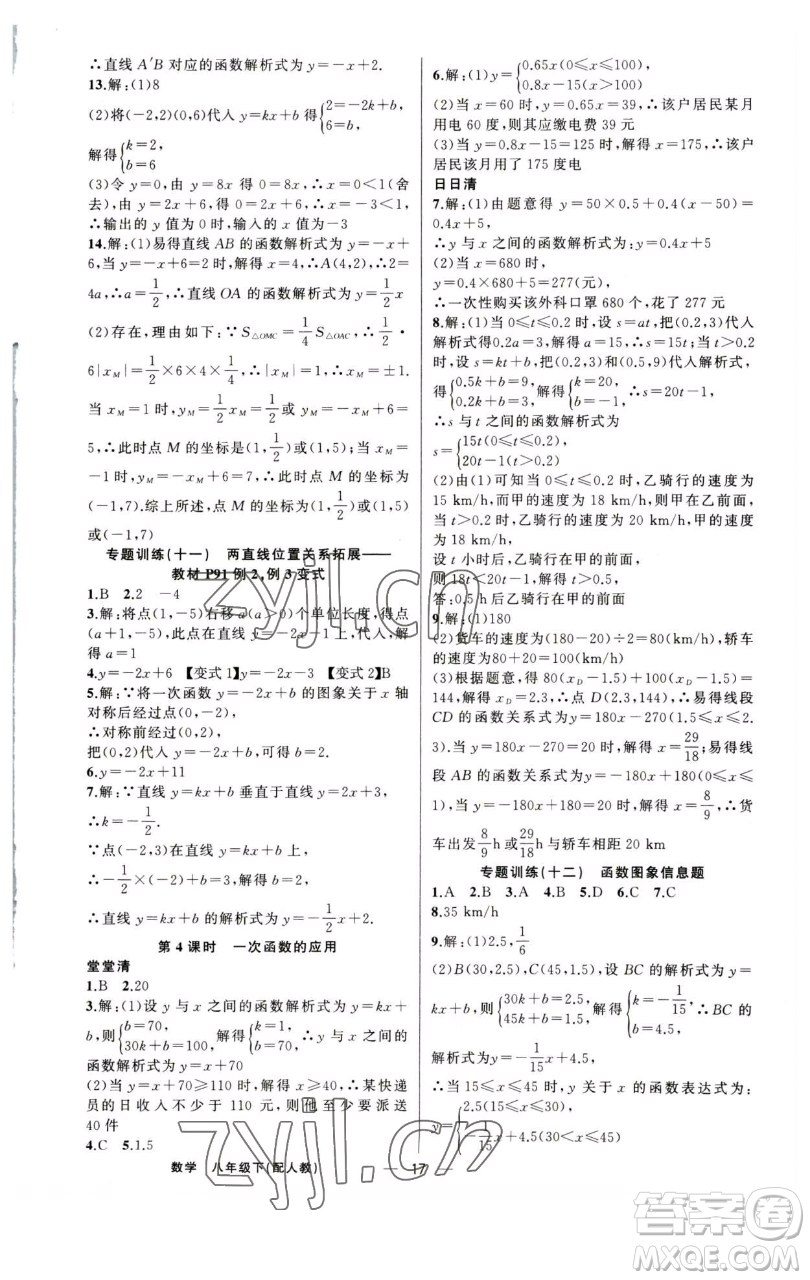 ∴直线 A′B 对应的函数解析式为 y=-x+2.
13.解:(1)8
(2)将(-2,2)(0,6)代入 y=kx+b 得{2=-2k+b, 6=b,
解得{k=2, b=6
(3)令 y=0,由 y=8x 得 0=8x,∴x=0<1(舍
去),由 y=2x+6 得 0=2x+6,∴x=-3<1,
∴输出的 y 值为 0 时,输入的 x 值为-3
14.解:(1)易得直线 AB 的函数解析式为 y=-x+
6,当 y=-x+6=2 时,解得 x=4,∴A(4,2),∴2=
4a,∴a=1/2,∴直线 OA 的函数解析式为 y=1/2x
(2)存在,理由如下:∵S△OMC=1/4S△OAC,∴1/2·
6|xM|=1/2×6×4×1/4,∴|xM|=1,∴xM=±1.
当 xM=1 时,yM=1/2xM=1/2或 yM=-xM+6=
5,∴此时点 M 的坐标是(1,1/2)或(1,5);当 xM=
-1 时,yM=-xM+6=7,∴此时点 M 的坐标为
(-1,7).综上所述,点 M 的坐标为(1,1/2)或(1,5)
或(-1,7)
专题训练(十一) 两直线位置关系拓展——
教材 P91 例 2,例 3 变式
1.B 2.2 -4
3.解:将点(1,-5)右移 a(a>0)个单位长度,得点
(a+1,-5),代入 y=-2x-1 得-2(a+1)-1=-5,解
得 a=1
4.y=-2x+6 【变式 1】y=-2x-3 【变式 2】B
5.解:∵将一次函数 y=-2x+b 的图象关于 x 轴
对称后经过点(0,-2),
∴对称前经过点(0,2),
把(0,2)代入 y=-2x+b 得 b=2
6.y=-2x+11
7.解:∵直线 y=kx+b 垂直于直线 y=2x+1,
∴k=-1/2.
∵点(-2,3)在直线 y=kx+b 上,
∴-1/2×(-2)+b=3,解得 b=2,
∴直线 y=kx+b 的解析式为 y=-1/2x+2
第 4 课时 一次函数的应用
堂堂清
1.B 2.20
3.解:(1)设 y 与 x 之间的函数解析式为 y=kx+
b,则{b=70, 30k+b=100, 解得{k=1, b=70,∴y 与 x 之间的
函数解析式为 y=x+70
(2)当 y=x+70≥110 时,解得 x≥40,∴某快递
员的日收入不少于 110 元,则他至少要派送
40 件
4.C 5.1.5
6.解:(1)y={0.65x(0≤x≤100), 0.8x-15(x>100)
(2)当 x=60 时,y=0.65x=39,∴该户居民某月
用电 60 度,则其应缴电费 39 元
(3)当 y=0.8x-15=125 时,解得 x=175,∴该户
居民该月用了 175 度电
日日清
7.解:(1)由题意得 y=50×0.5+0.4(x-50)=
0.4x+5,
∴y 与 x 之间的函数解析式为:y=0.4x+5
(2)当 x=680 时,
y=0.4×680+5=277(元),
∴一次性购买该外科口罩 680 个,花了 277 元
8.解:(1)当 0≤t≤0.2 时,设 s=at,把(0.2,3)代入
解析式得0.2a=3,解得 a=15,∴s=15t;当 t>0.2
时,设 s=kt+b,把(0.2,3)和(0.5,9)代入解析式,
得{0.5k+b=9, 0.2k+b=3, 解得{k=20, b=-1, ∴s=20t-1,
∴s 与 t 之间的函数解析式为
s={15t(0≤t≤0.2), 20t-1(t>0.2)
(2)由(1)可知当 0≤t≤0.2 时,乙骑行的速度为
15 km/h,而甲的速度为 18 km/h,则甲在乙前面,
当 t>0.2 时,乙骑行的速度为 20 km/h,甲的速度
为 18 km/h,
设 t 小时后,乙骑行在甲的前面,
则 18t<20t-1,解得 t>0.5,
答:0.5 h 后乙骑行在甲的前面
9.解:(1)180
(2)货车的速度为(180-20)÷2=80(km/h),轿车
的速度为80+20=100(km/h)
(3)根据题意,得 80(xD-1.5)+80(xD-1)=
144,解得 xD=2.3,∴点 D(2.3,144),易得线段
CD 的函数关系式为y=180x-270(1.5≤x≤2.
3).当 y=180x-270=20 时,解得 x=29/18;易得线
段 AB 的函数关系式为 y=-180x+180(0≤x≤
1),当 y=-180x+180=20 时,解得 x=8/9,∴货
车出发8/9h或29/18h与轿车相距 20 km
专题训练(十二) 函数图象信息题
1.A 2.B 3.A 4.B 5.D 6.C 7.C
8.35 km/h
9.解:(1)2.5,1/6
(2)B(30,2.5),C(45,1.5),设 BC 的解析式为 y=
kx+b,则{30k+b=2.5, 45k+b=1.5, 解得{k=-1/15, b=4.5, ∴BC 的
解析式为 y=-1/15x+4.5,
∴当 15≤x≤45 时,y 关于 x 的函数表达式为:
y={2.5(15≤x≤30), -1/15x+4.5(30<x≤45)
数学 八年级下(配人教) — 17 —
zyjl.cn
zyjl.cn
答案圈
MXQE.COM